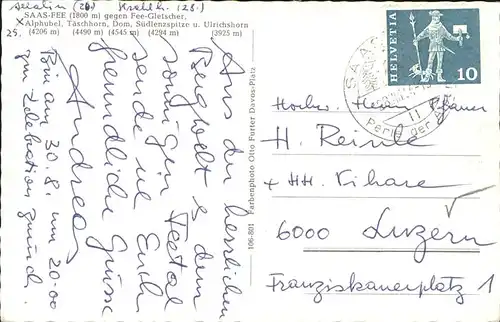 (28.)
SAAS-FEE (1800 m) gegen Fee-Gletscher,
x Alphubel, Täschhorn, Dom, Südlenzspitze u. Ulrichshorn
25. (4206 m) (4490 m) (4545 m) (4294 m) (3925 m)
Aus der herrlichen
Bergwelt & dem
sonnigen Feetal
sende ich Euch
freundliche Grüsse
Andreas
Bin am 30.8. um 20.00
zur Zelebration zurück.
106-801 Farbenphoto Otto Furter Davos-Platz
HELVETIA
10
SAAS
11
Perle der
Hochw. Herrn Pfarrer
H. Reinle
+ HH. Vikare
6000 Luzern
Franziskanerplatz 1